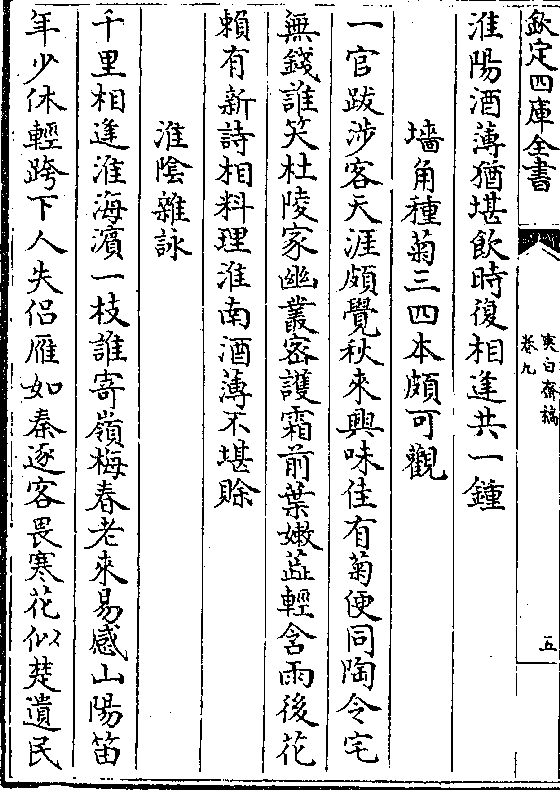 欽定四庫全書
卷九
五
淮陽酒薄猶堪飲時復相逢共一鍾
墻角種菊三四本頗可觀
一官跋涉客天涯頗覺秋來興味佳有菊便同陶令宅
無錢誰笑杜陵家幽叢密護霜前葉嫩蘂輕含雨後花
賴有新詩相料理淮南酒薄不堪賒
淮陰雜詠
千里相逢淮海濱一枝誰寄嶺梅春老來易感山陽笛
年少休輕跨下人失侣雁如秦逐客畏寒花似楚遺民